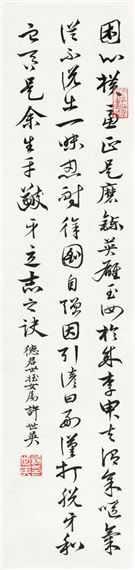 困心橫慮正是磨鍊英雄玉汝於成李申夫謂余嘔氣
從不說出一味忍耐徐圖自強因引諺曰好漢打脫牙和
血吞是余生平齩牙立志之訣 德君世姪女屬 許世英